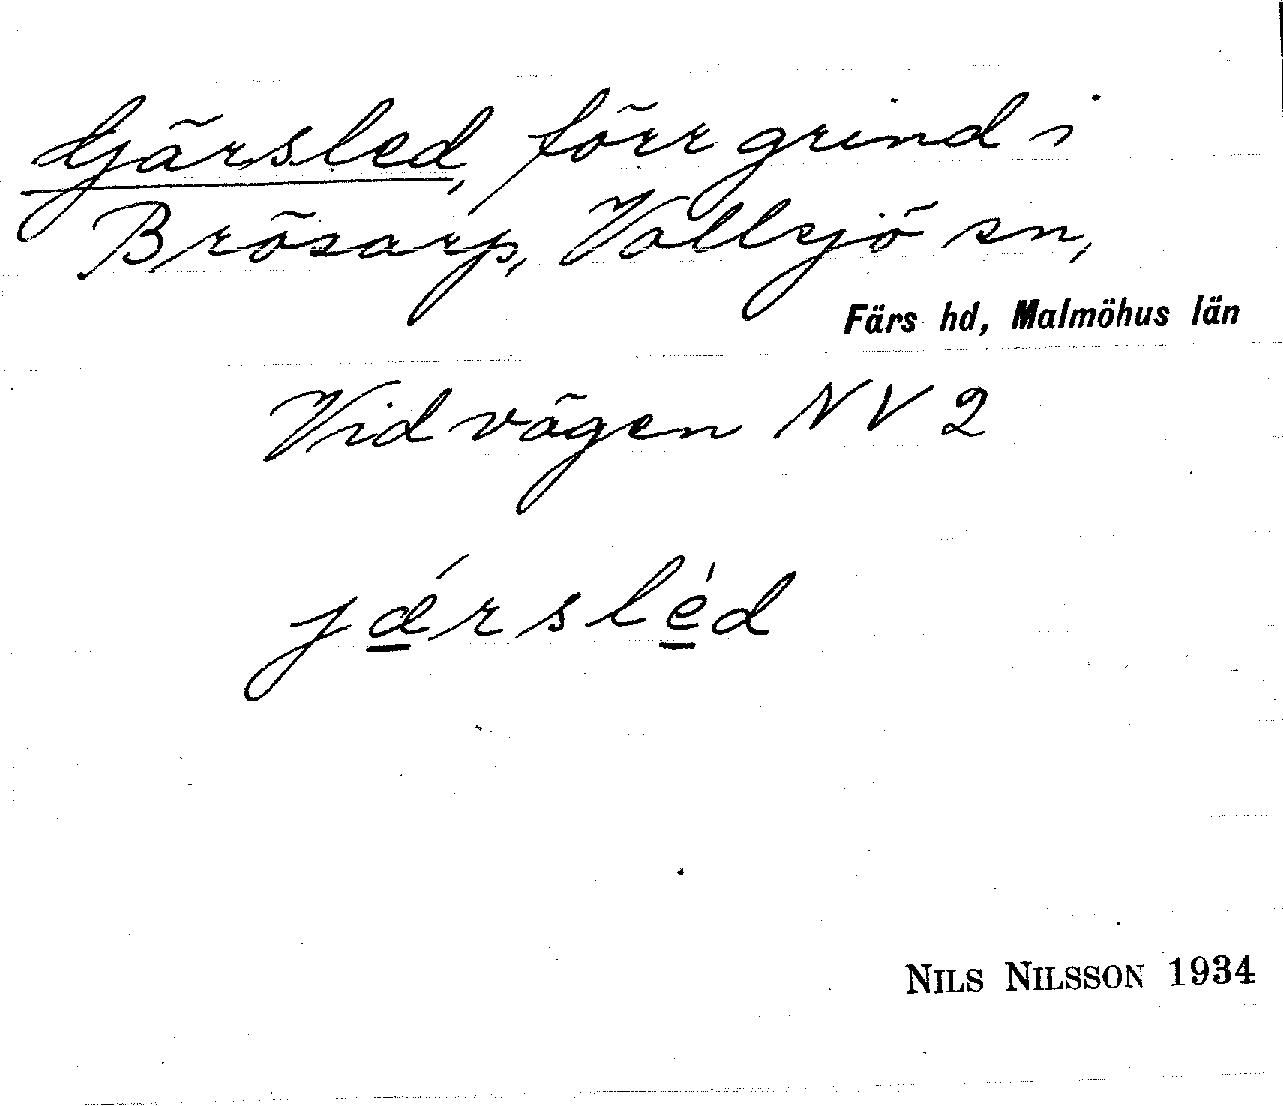 Gjärsled, förr grind i
Brösarp, Vollsjö sn,
Färs hd, Malmöhus län
Vid vägen NV 2
jǽrsléd
NILS NILSSON 1934